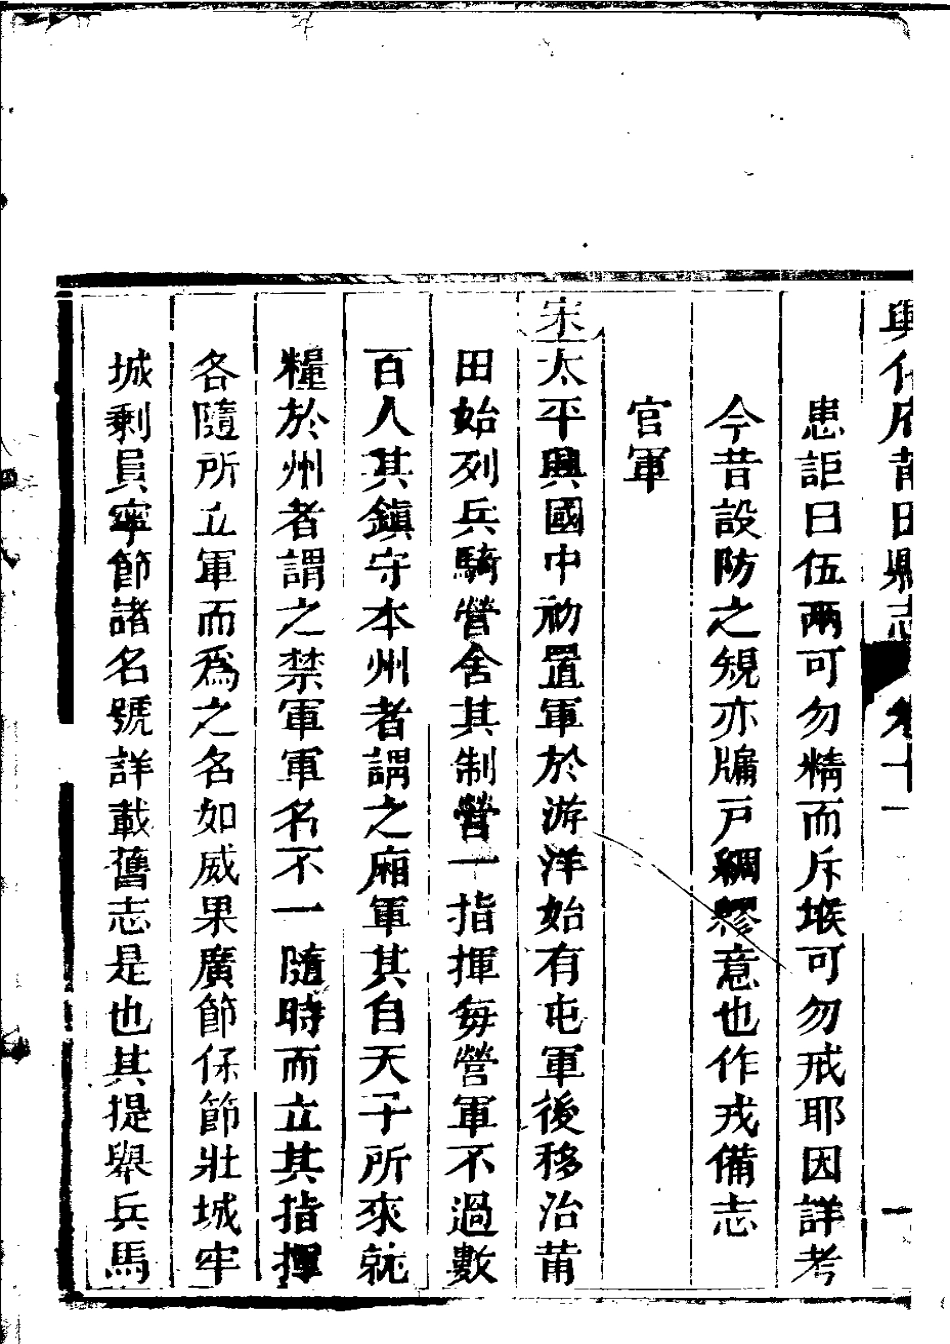 興化府莆田縣志 卷十一 一
患詎曰伍兩可勿精而斥堠可勿戒耶因詳考
今昔設防之䂓亦牖戶綢繆意也作戎備志
官軍
宋太平興國中初置軍於游洋始有屯軍後移治莆
田始列兵騎營舍其制營一指揮每營軍不過數
百人其鎮守本州者謂之廂軍其自天子所來就
糧於州者謂之禁軍軍名不一隨時而立其指揮
各隨所立軍而爲之名如威果廣節保節壯城牢
城剩員寧節諸名號詳載舊志是也其提舉兵馬